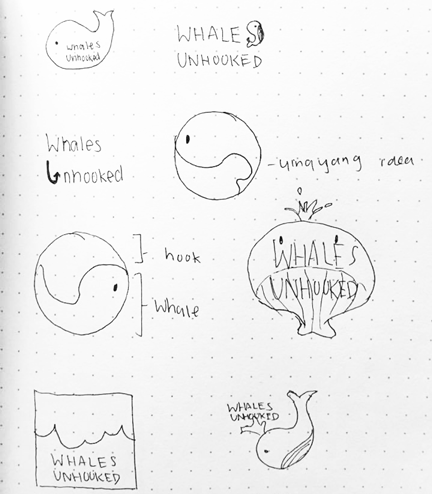 whales
Unhooked
WHALES
UNHOOKED
Whales
Unhooked
- yingyang idea
hook
Whale
WHALES
UNHOOKED
WHALES
UNHOOKED
WHALES
UNHOOKED